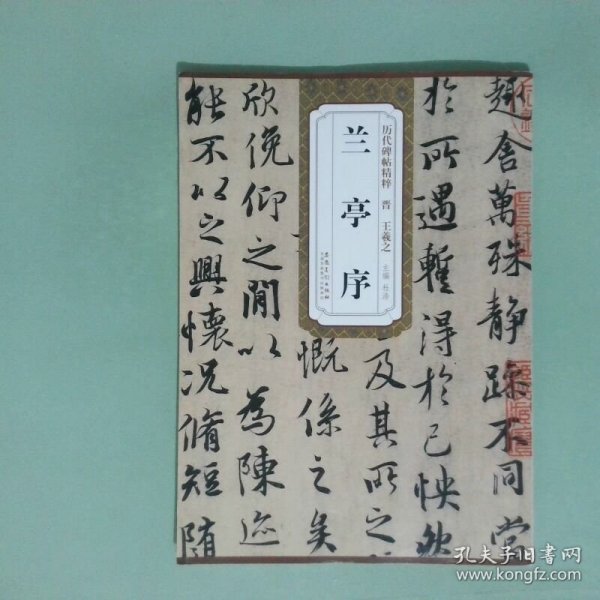 趣舍萬殊静躁不同當
於所遇暫得於己快然
及其所之
慨係之矣
欣俛仰之閒以為陳迹
能不以之興懷況脩短随
历代碑帖精粹 晋 王羲之
兰亭序
主编 杜浩
安徽美术出版社
孔夫子旧书网
www.kongfz.com